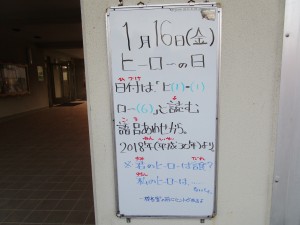 1月16日(金)
ヒーローの日
日付は「ヒ(1)・(1)
ロー(6)」と読む
語呂あわせから。
2018年(平成30年)より
※君のヒーローは誰?
私のヒーローは、